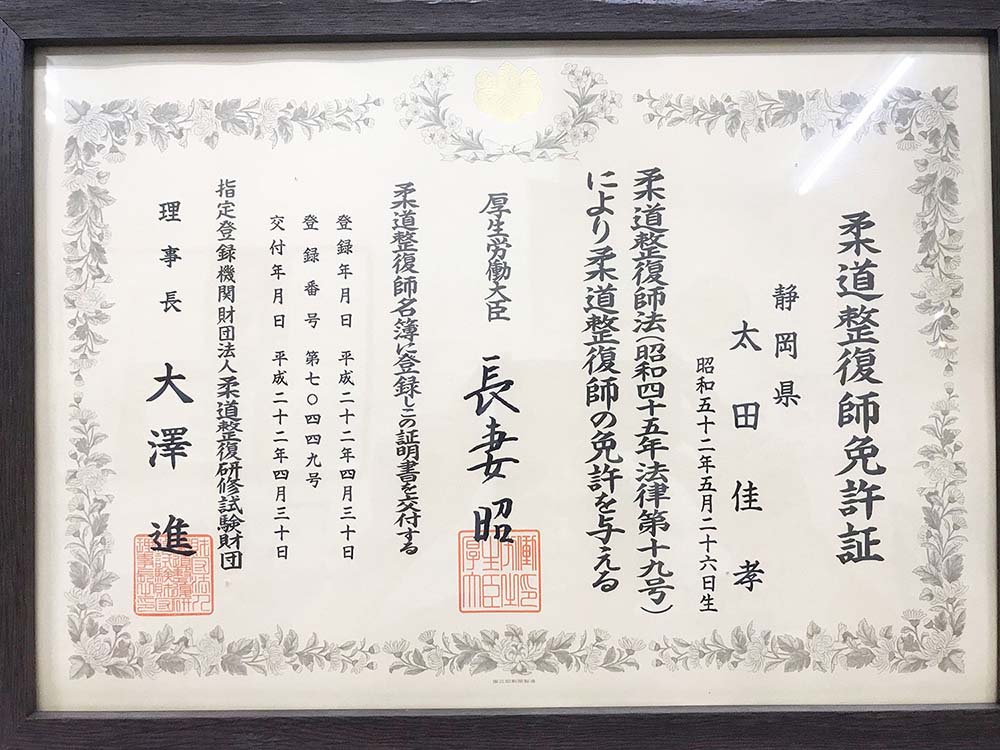 柔道整復師免許証
静岡県
太田佳孝
昭和五十二年五月二十六日生
柔道整復師法(昭和四十五年法律第十九号)
により柔道整復師の免許を与える
厚生労働大臣 長妻昭
柔道整復師名簿に登録しこの証明書を交付する
登録年月日 平成二十二年四月三十日
登録番号 第七〇四四九号
交付年月日 平成二十二年四月三十日
指定登録機関財団法人柔道整復研修試験財団
理事長 大澤進